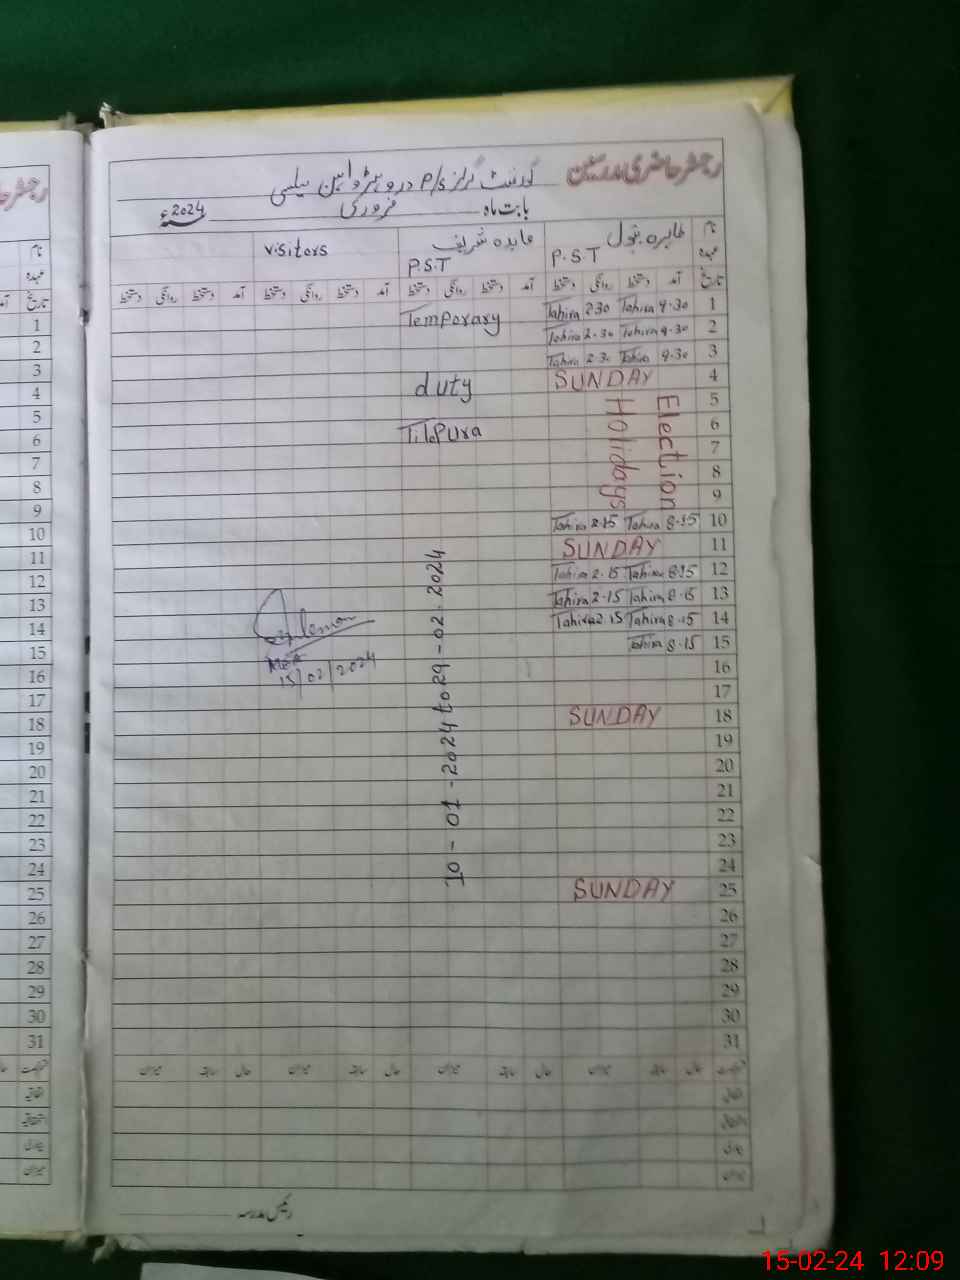 رجسٹر حاضری مدرسین
گورنمنٹ گرلز P/S
بابت ماہ فروری 2024ء
نام طاہرہ بتول عابدہ شریف visitors
عہدہ P.S.T P.S.T
تاریخ آمد دستخط روانگی دستخط آمد دستخط روانگی دستخط آمد دستخط روانگی دستخط آمد دستخط روانگی دستخط
1 Tahira 9.30 Tahira 2.30 Temporary
2 Tahira 9.30 Tahira 2.30
3 Tahira 9.30 Tahira 2.3
4 SUNDAY duty
5 Election Holidays
6 TiloPura
7
8
9
10 Tahira 8.15 Tahira 2.15
11 SUNDAY
12 Tahira 8.15 Tahira 2.15
13 Tahira 8.15 Tahira 2.15
14 Tahira 8.15 Tahira 2.15
15 Tahira 8.15
10-01-2024 to 29-02-2024
MEA
15/02/2024
16
17
18 SUNDAY
19
20
21
22
23
24
25 SUNDAY
26
27
28
29
30
31
حال سابقہ میزان حال سابقہ میزان حال سابقہ میزان حال سابقہ میزان
اتفاقیہ
استحقاقیہ
بیماری
میزان
رئیس مدرسہ
رجسٹر حا
نام
عہدہ
تاریخ
1
2
3
4
5
6
7
8
9
10
11
12
13
14
15
16
17
18
19
20
21
22
23
24
25
26
27
28
29
30
31
15-02-24 12:09